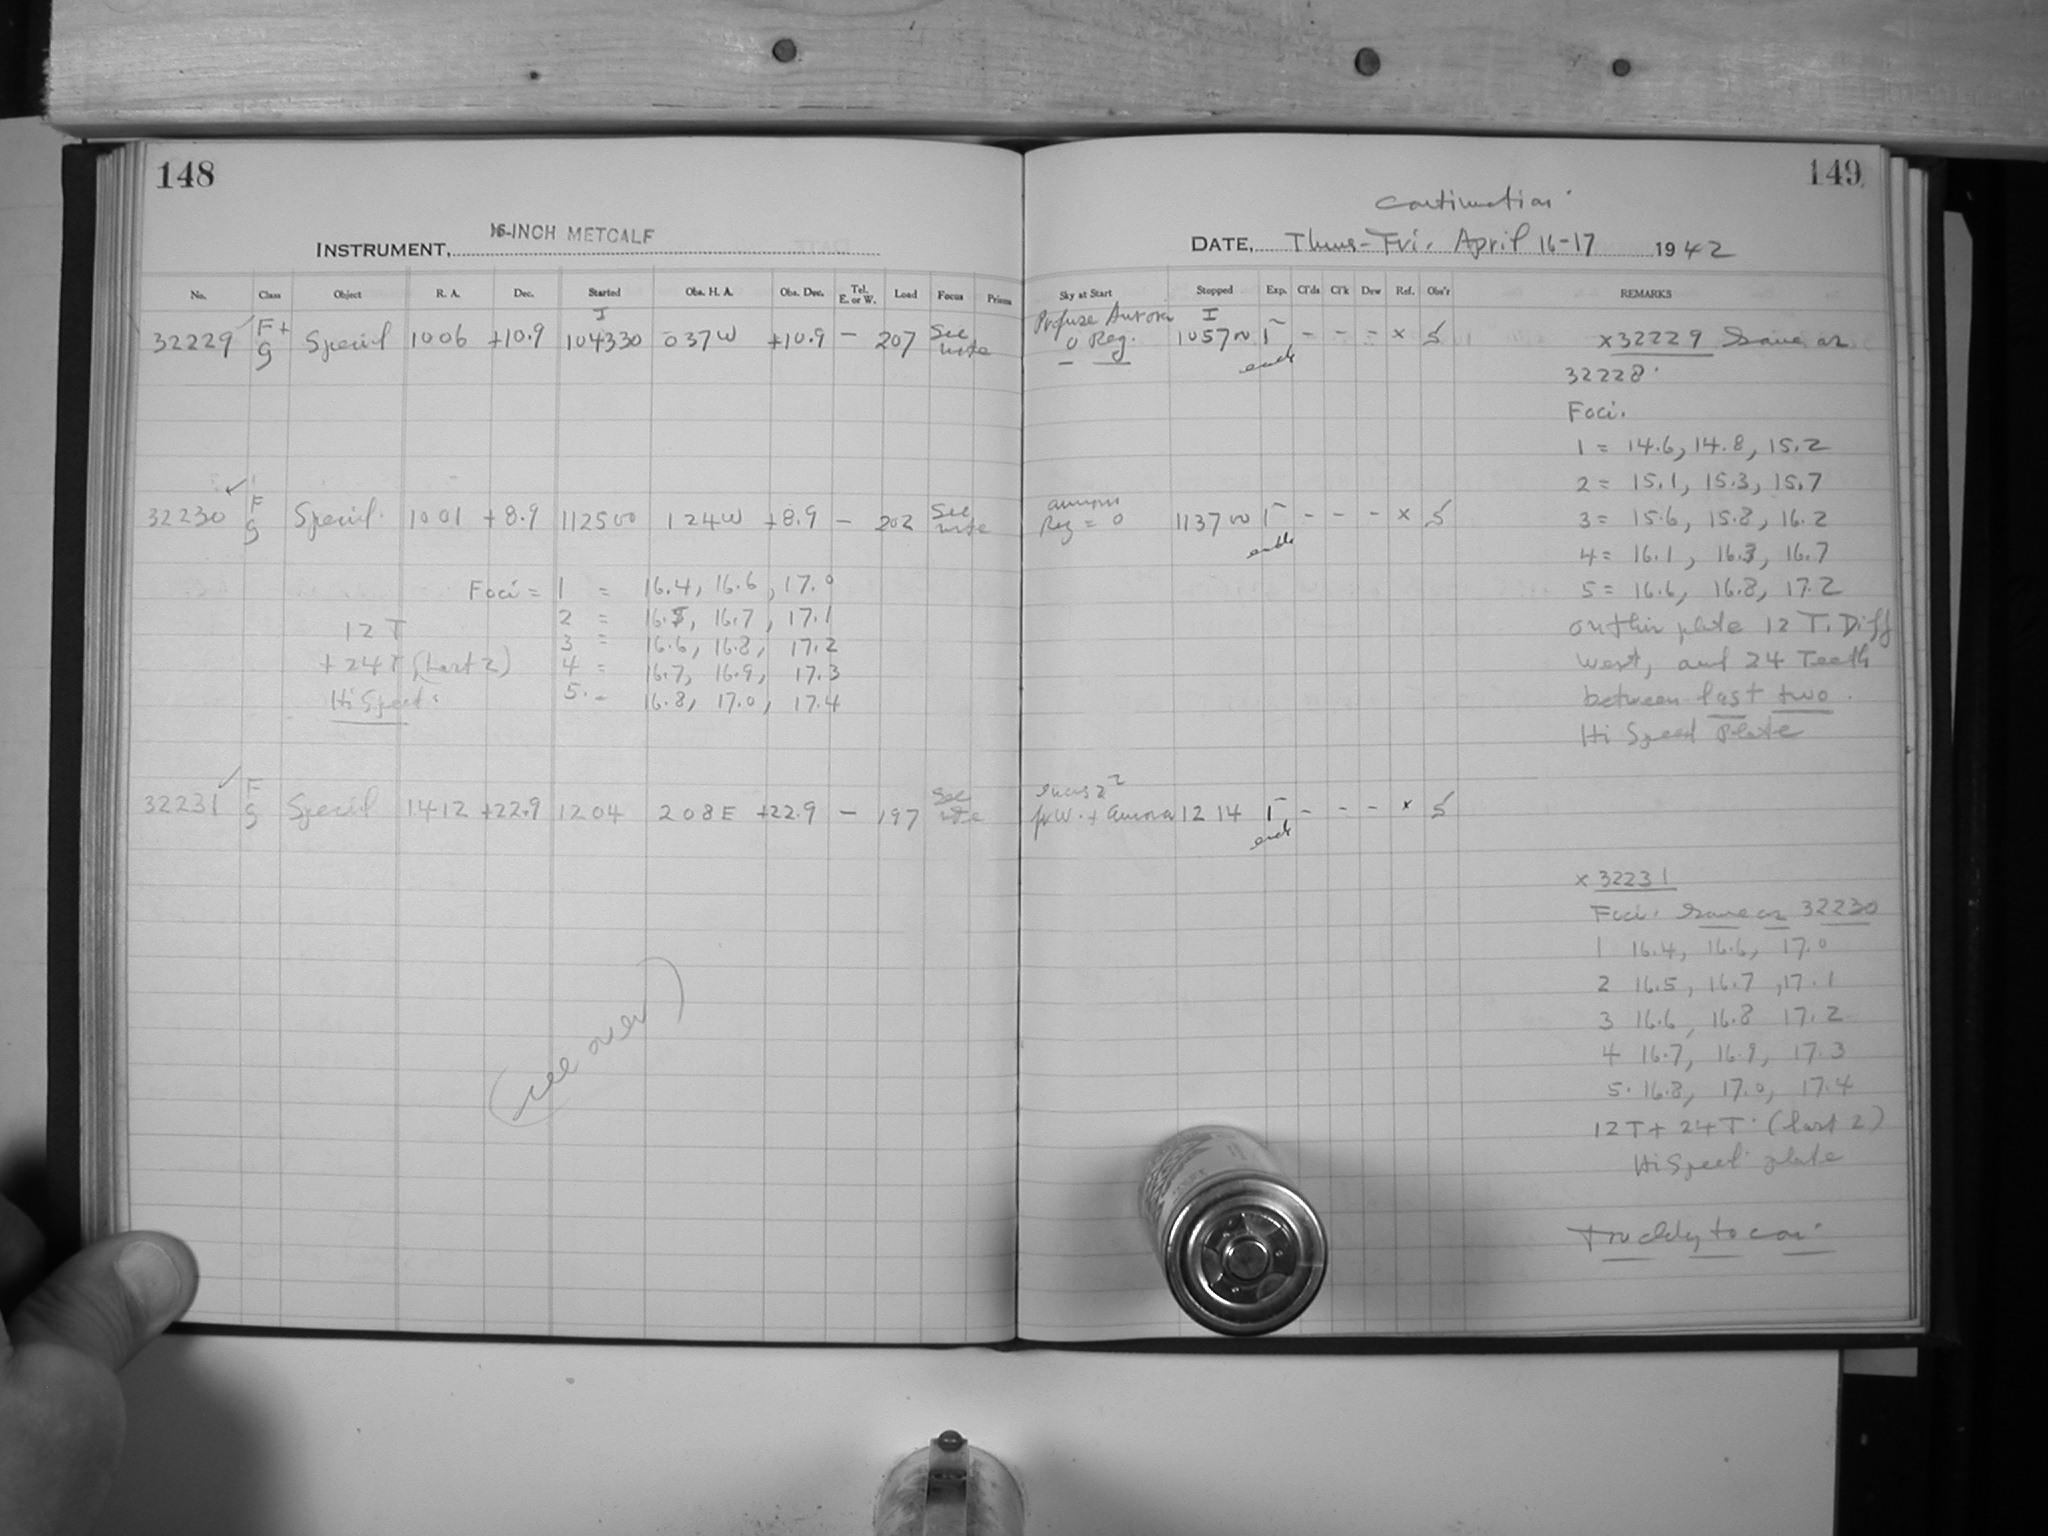 148
INSTRUMENT, 16-INCH METCALF
No. Class Object R. A. Dec. Started Obs. H. A. Obs. Dec. Tel. E. or W. Load Focus Prism
32229 F+ S Special 1006 +10.9 I 104330 037W +10.9 - 207 See note
32230 F S Special 1001 +8.9 112500 124W +8.9 - 202 See note
Foci = 1 = 16.4, 16.6, 17.0
2 = 16.5, 16.7, 17.1
12 T
3 = 16.6, 16.8, 17.2
+ 24T (Last 2)
4 = 16.7, 16.9, 17.3
Hi Speed
5. = 16.8, 17.0, 17.4
32231 F S Special 1412 +22.9 1204 208E +22.9 - 197 See note
(see over)
149
Continuation
DATE, Thurs-Fri. April 16-17 1942
Sky at Start Stopped Exp. Cl'ds Cl'k Dew Ref. Obs'r REMARKS
Profuse Aurora 0 Reg. I 105700 - - - x
aurora Reg = 0 113700 - - - x
+ aurora 1214 - - - x
x32229 Same as
32228.
Foci.
1 = 14.6, 14.8, 15.2
2 = 15.1, 15.3, 15.7
3 = 15.6, 15.8, 16.2
4 = 16.1, 16.3, 16.7
5 = 16.6, 16.8, 17.2
on this plate 12 T. Diff
west, and 24 Teeth
between last two.
Hi Speed Plate
x 32231
Foci. Same as 32230
1 16.4, 16.6, 17.0
2 16.5, 16.7, 17.1
3 16.6, 16.8 17.2
4 16.7, 16.9, 17.3
5. 16.8, 17.0, 17.4
12T + 24T. (last 2)
Hi Speed plate